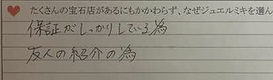 たくさんの宝石店があるにもかかわらず、なぜジュエルミキを選ん
保証がしっかりしている為
友人の紹介の為